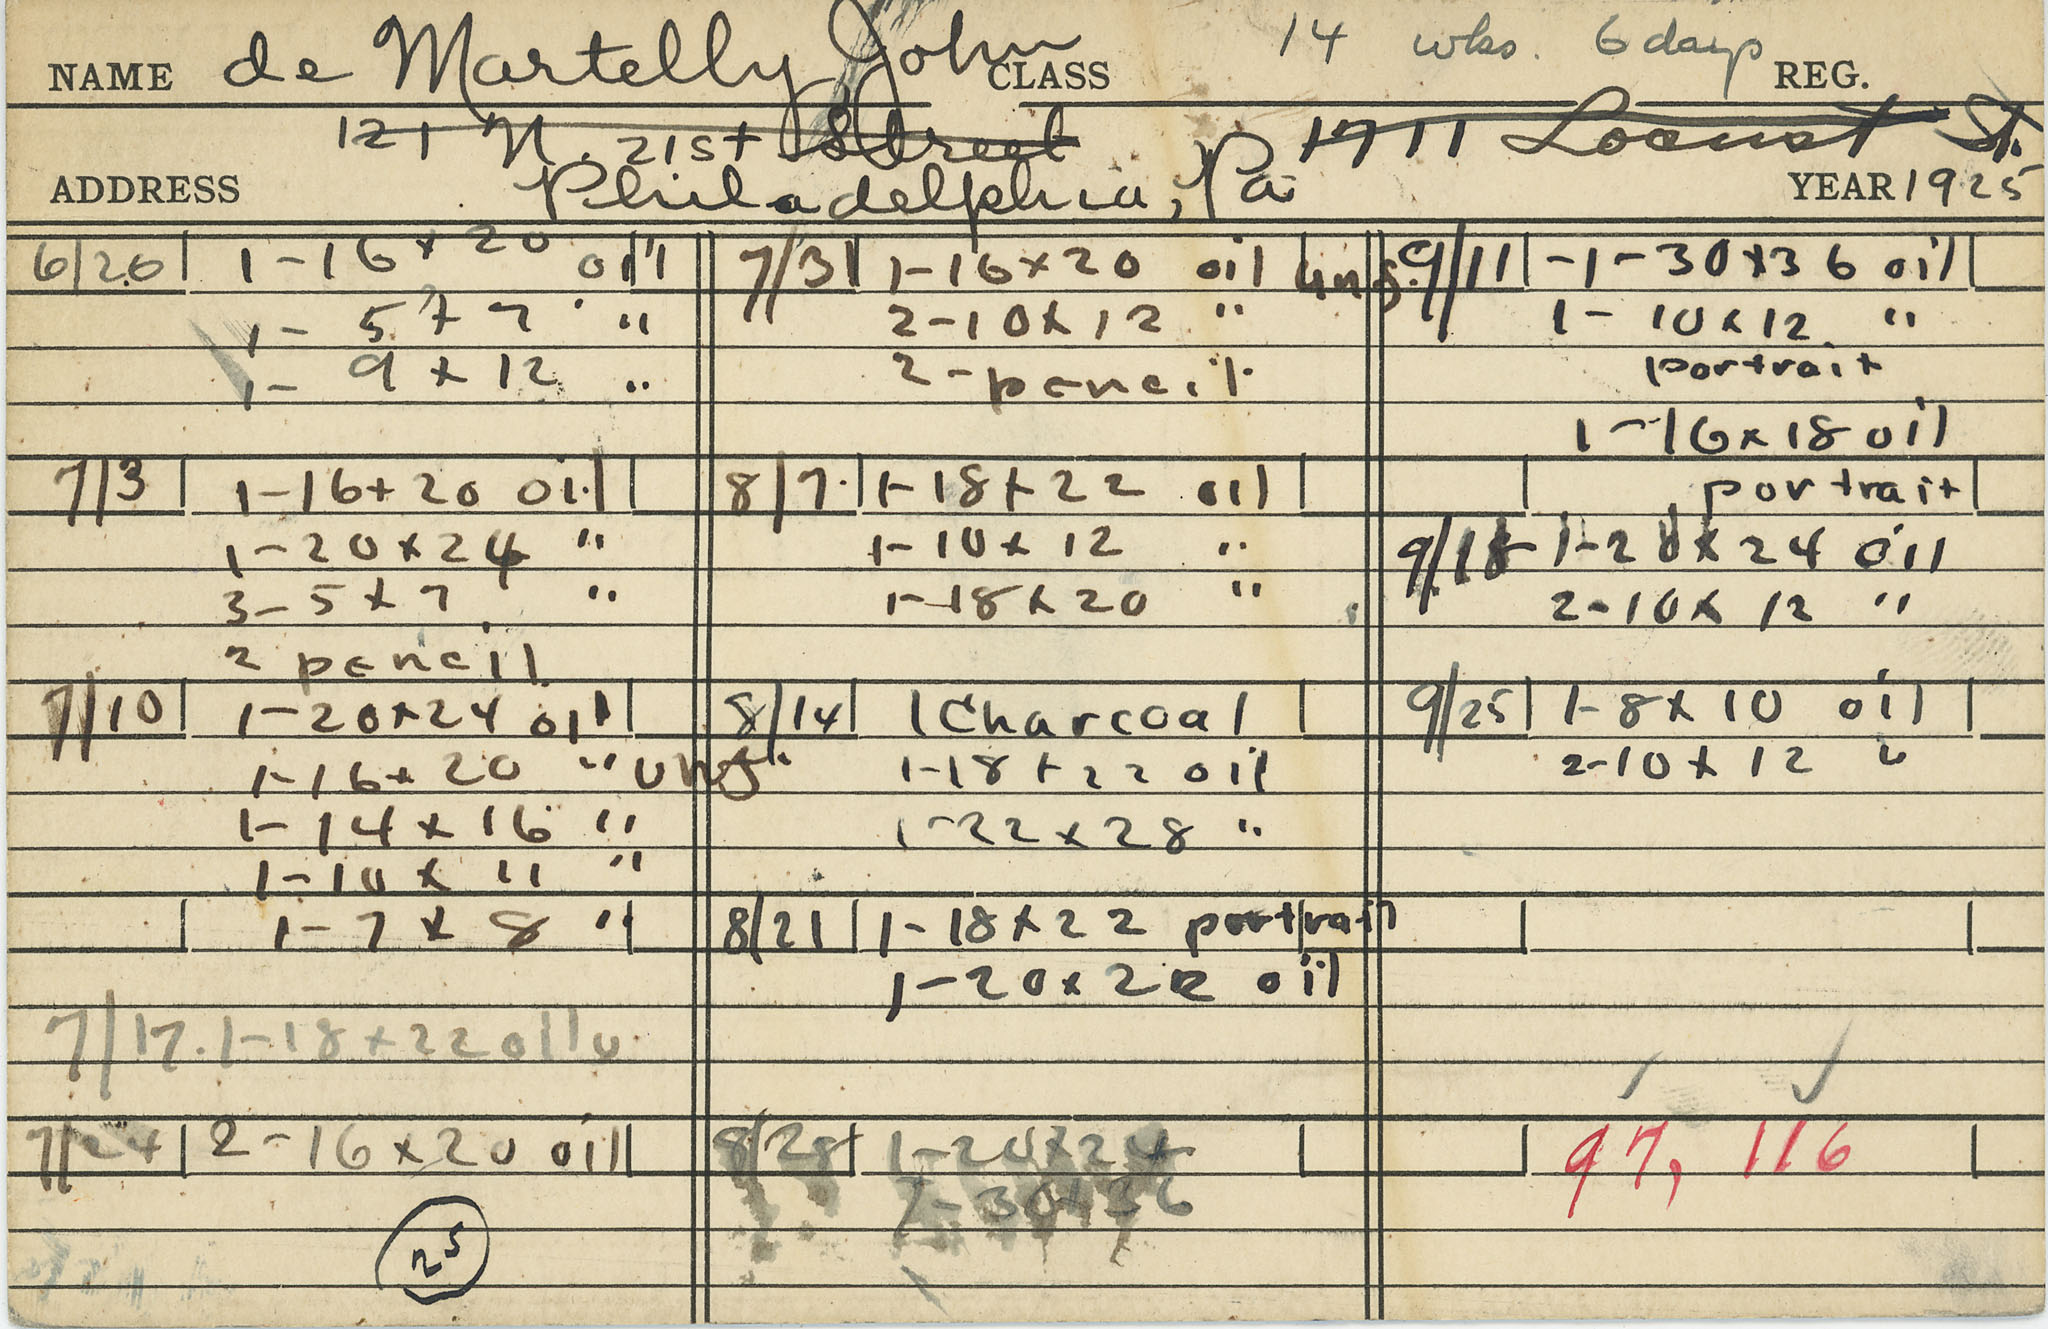 NAME de Martelly, John CLASS 14 wks. 6 days REG.
121 N. 21st Street 1711 Locust St.
ADDRESS Philadelphia, Pa YEAR 1925
6/26 1-16x20 oil
1- 5x7 "
1- 9x12 "
7/3 1-16x20 oil
1-20x24 "
3-5x7 "
2 pencil
7/10 1-20x24 oil
1-16x20 " unf.
1-14x16 "
1-10x11 "
1-7x8 "
7/17. 1-18x22 oil
7/24 2-16x20 oil
25
7/31 1-16x20 oil unf.
2-10x12 "
2-pencil
8/7. 1-18x22 oil
1-10x12 "
1-18x20 "
8/14 1 Charcoal
1-18x22 oil
1-22x28 "
8/21 1-18x22 portrait
1-20x22 oil
8/28 1-20x24
1-30x36
9/11 -1-30x36 oil
1-10x12 "
portrait
1-16x18 oil
portrait
9/18 1-20x24 oil
2-10x12 "
9/25 1-8x10 oil
2-10x12 "
97, 116